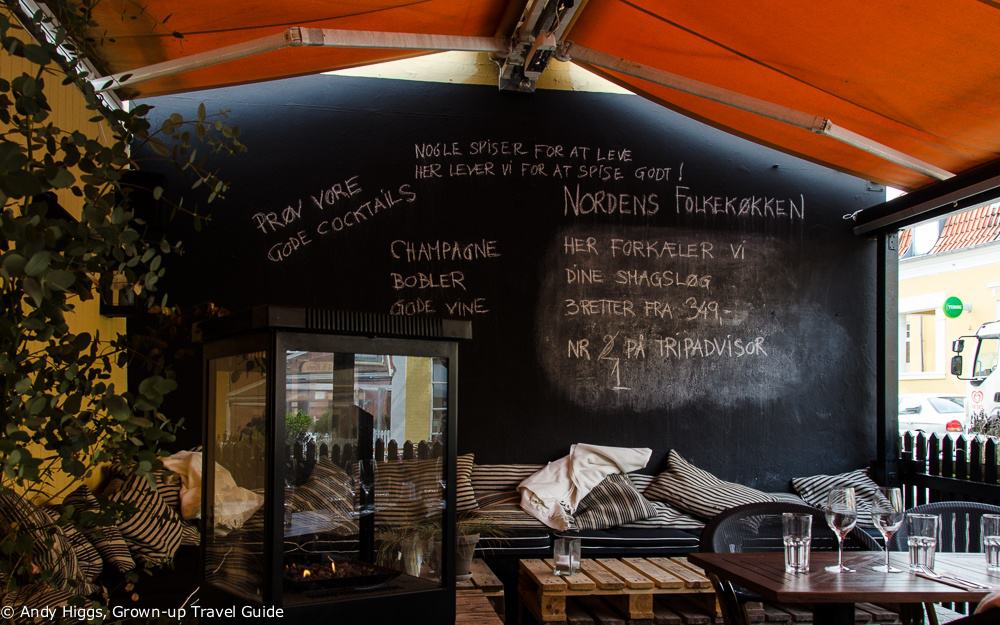 NOGLE SPISER FOR AT LEVE
HER LEVER VI FOR AT SPISE GODT!
PRØV VORE
GODE COCKTAILS
CHAMPAGNE
BOBLER
GODE VINE
NORDENS FOLKEKØKKEN
HER FORKÆLER VI
DINE SMAGSLØG
3 RETTER FRA 349,-
NR 2 PÅ TRIPADVISOR
1
© Andy Higgs, Grown-up Travel Guide